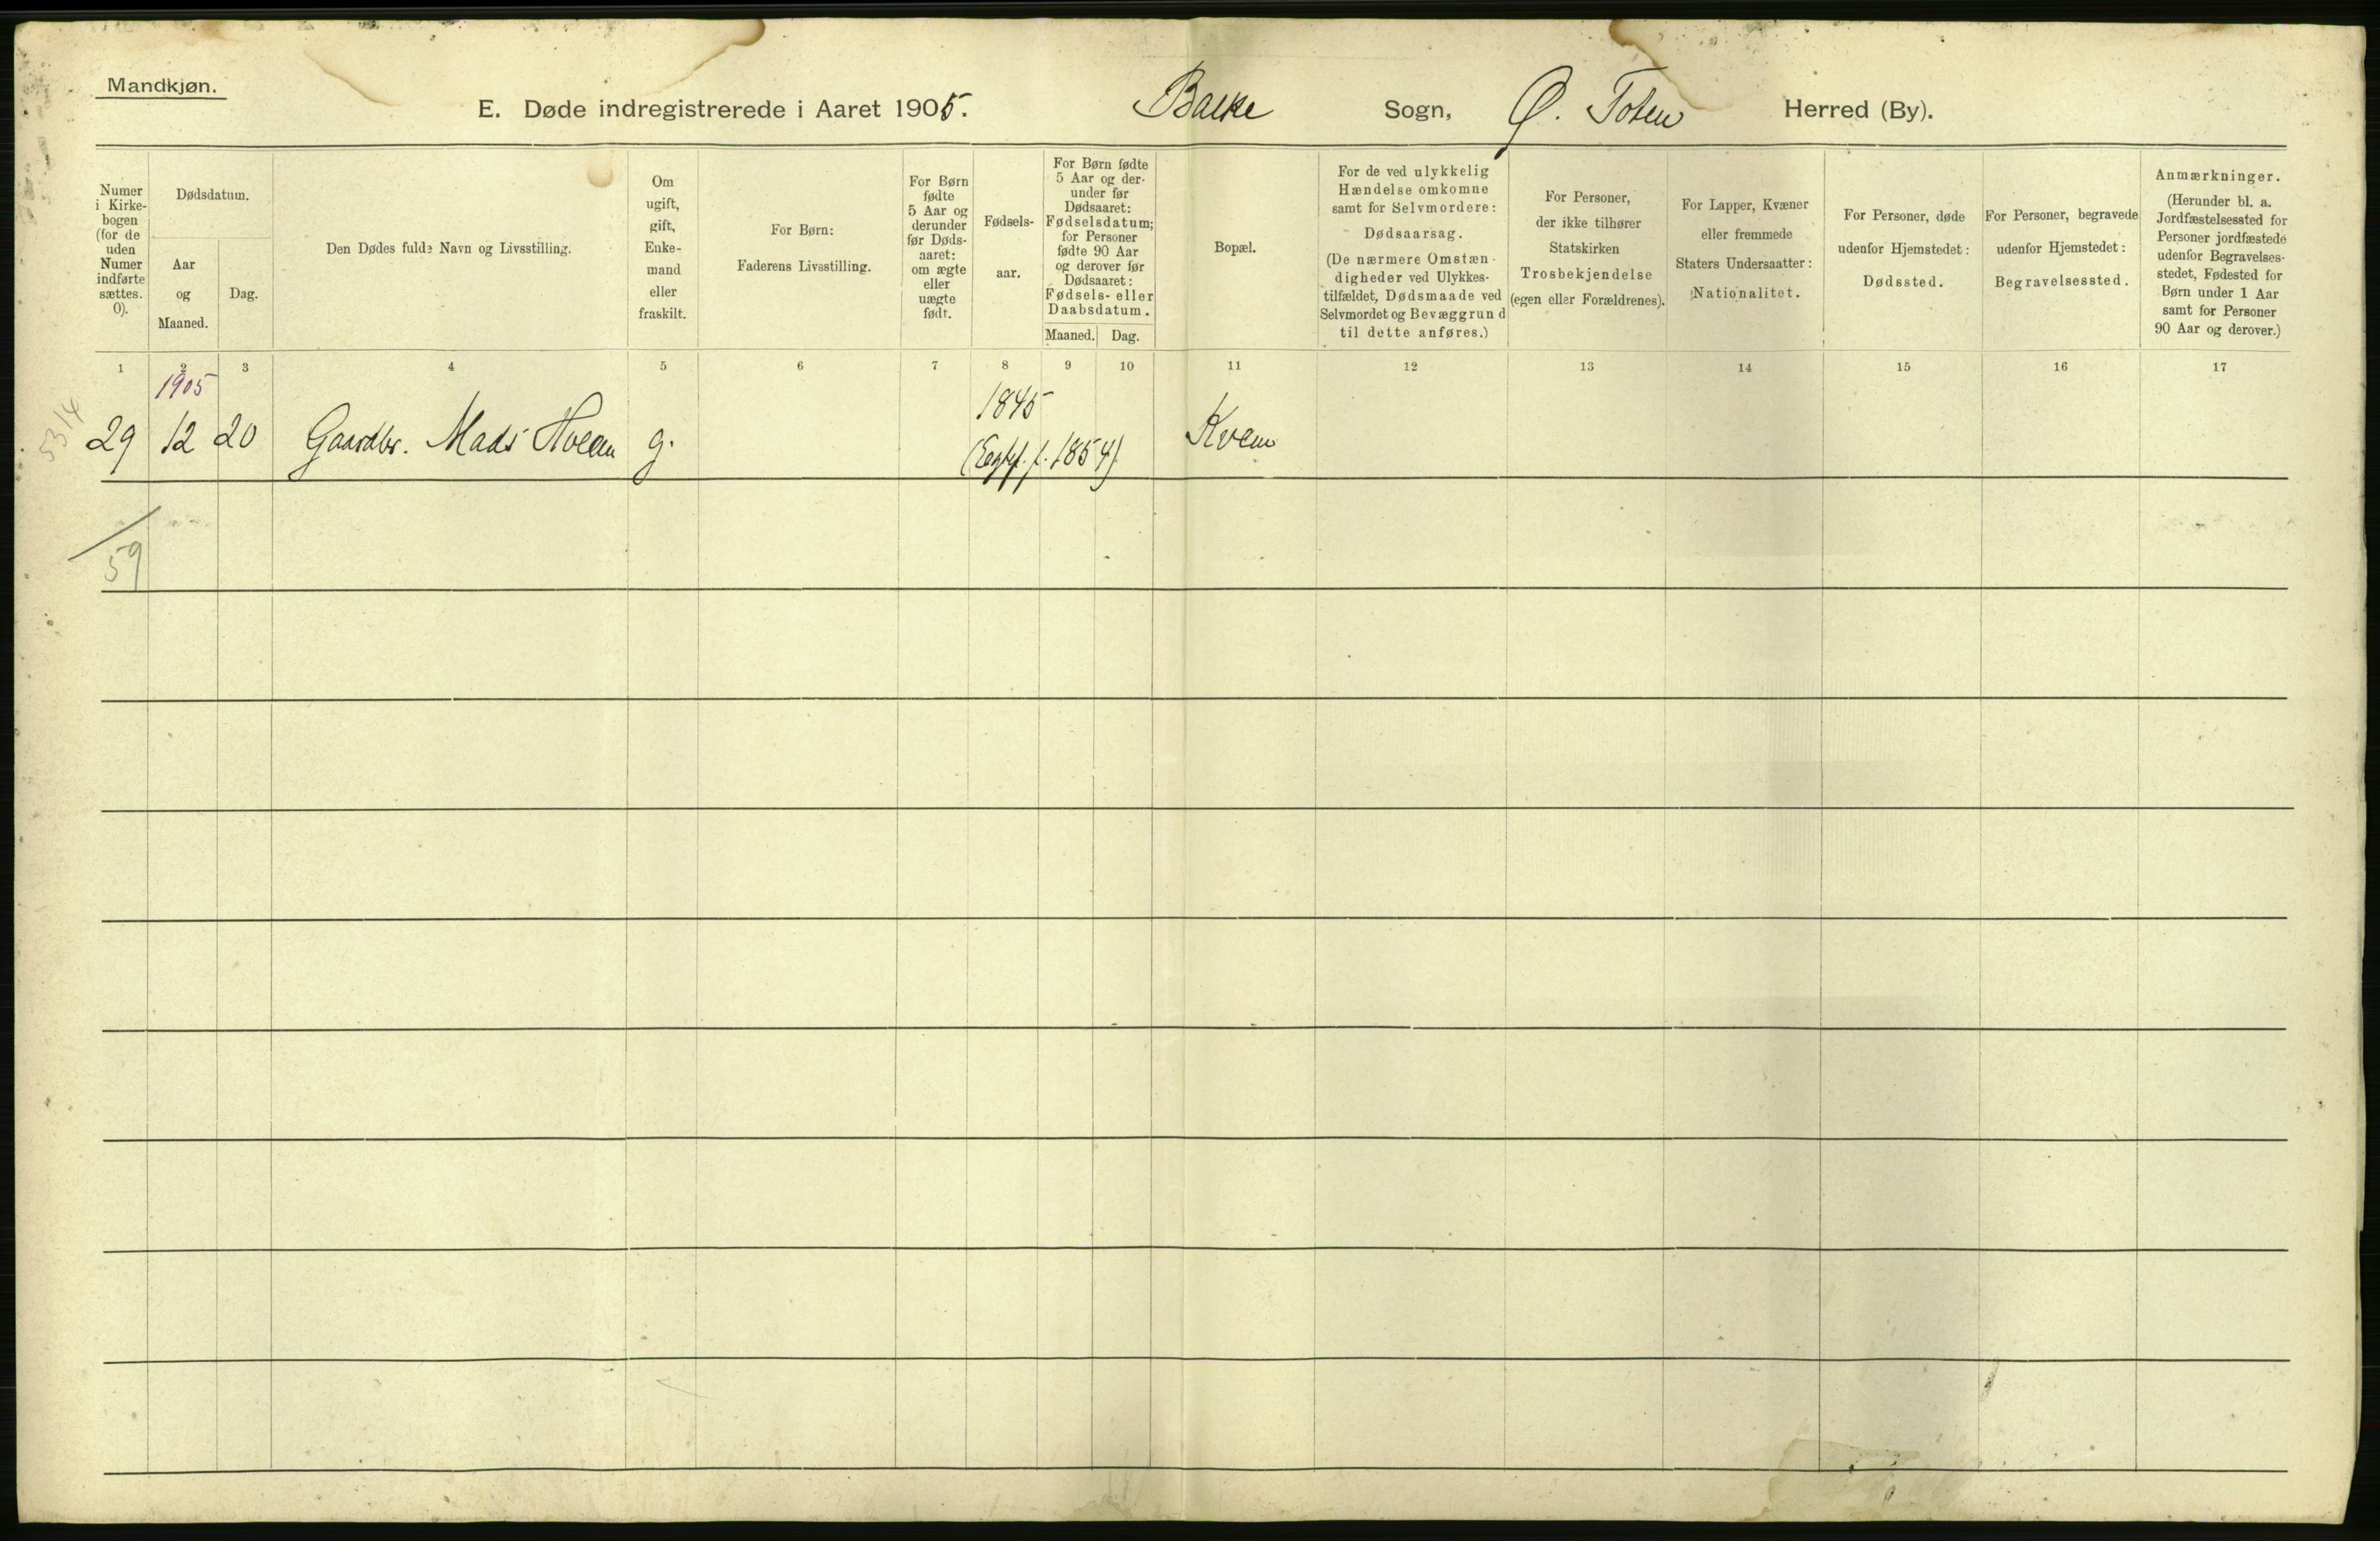 Mandkjøn.
E. Døde indregistrerede i Aaret 1905. Balke Sogn, Ø. Toten Herred (By).
Numer
i Kirke-
bogen
(for de
uden
Numer
indførte
sættes.
0).
Dødsdatum.
Aar
og
Maaned.
Dag.
Den Dødes fulde Navn og Livsstilling.
Om
ugift,
gift,
Enke-
mand
eller
fraskilt.
For Børn:
Faderens Livsstilling.
For Børn
fødte
5 Aar og
derunder
før Døds-
aaret:
om ægte
eller
uægte
født.
Fødsels-
aar.
For Børn fødte
5 Aar og der-
under før
Dødsaaret:
Fødselsdatum;
for Personer
fødte 90 Aar
og derover før
Dødsaaret:
Fødsels- eller
Daabsdatum.
Maaned. Dag.
Bopæl.
For de ved ulykkelig
Hændelse omkomne
samt for Selvmordere:
Dødsaarsag.
(De nærmere Omstæn-
digheder ved Ulykkes-
tilfældet, Dødsmaade ved
Selvmordet og Bevæggrund
til dette anføres.)
For Personer,
der ikke tilhører
Statskirken
Trosbekjendelse
(egen eller Forældrenes).
For Lapper, Kvæner
eller fremmede
Staters Undersaatter:
Nationalitet.
For Personer, døde
udenfor Hjemstedet:
Dødssted.
For Personer, begravede
udenfor Hjemstedet:
Begravelsessted.
Anmærkninger.
(Herunder bl. a.
Jordfæstelsessted for
Personer jordfæstede
udenfor Begravelses-
stedet, Fødested for
Børn under 1 Aar
samt for Personer
90 Aar og derover.)
1 2 3 4 5 6 7 8 9 10 11 12 13 14 15 16 17
1905
1845
5314
29 12 20 Gaardbr. Mads Hveem g. (Egtef. f. 1854). Kvem
59